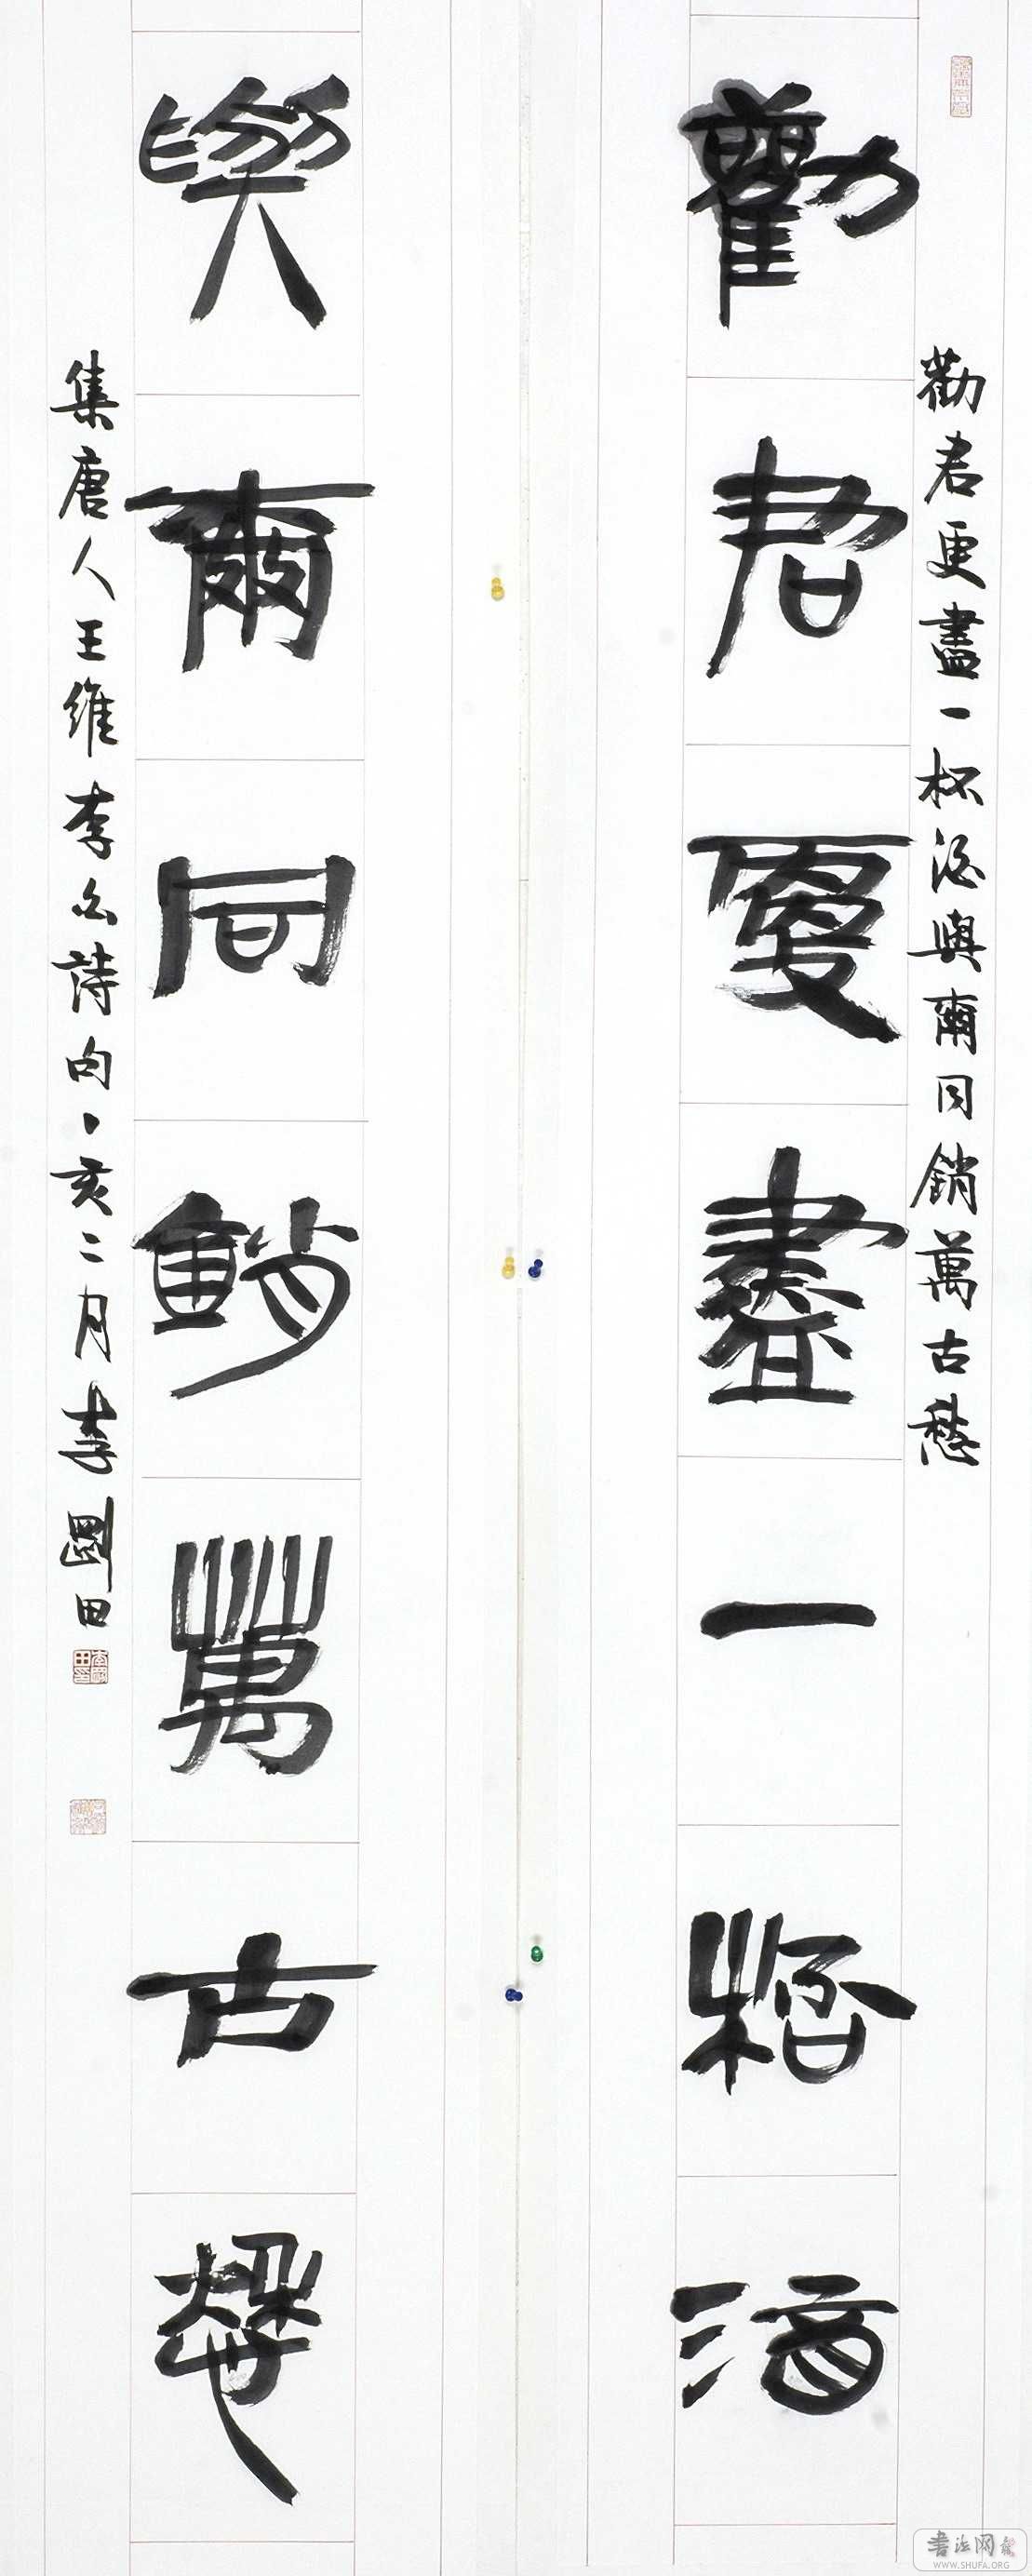 勸君更盡一桮酒
勸君更盡一杯酒與爾同銷萬古愁
與爾同銷萬古愁
集唐人王維李白詩句丁亥二月李剛田
書法网
WWW.SHUFA.ORG